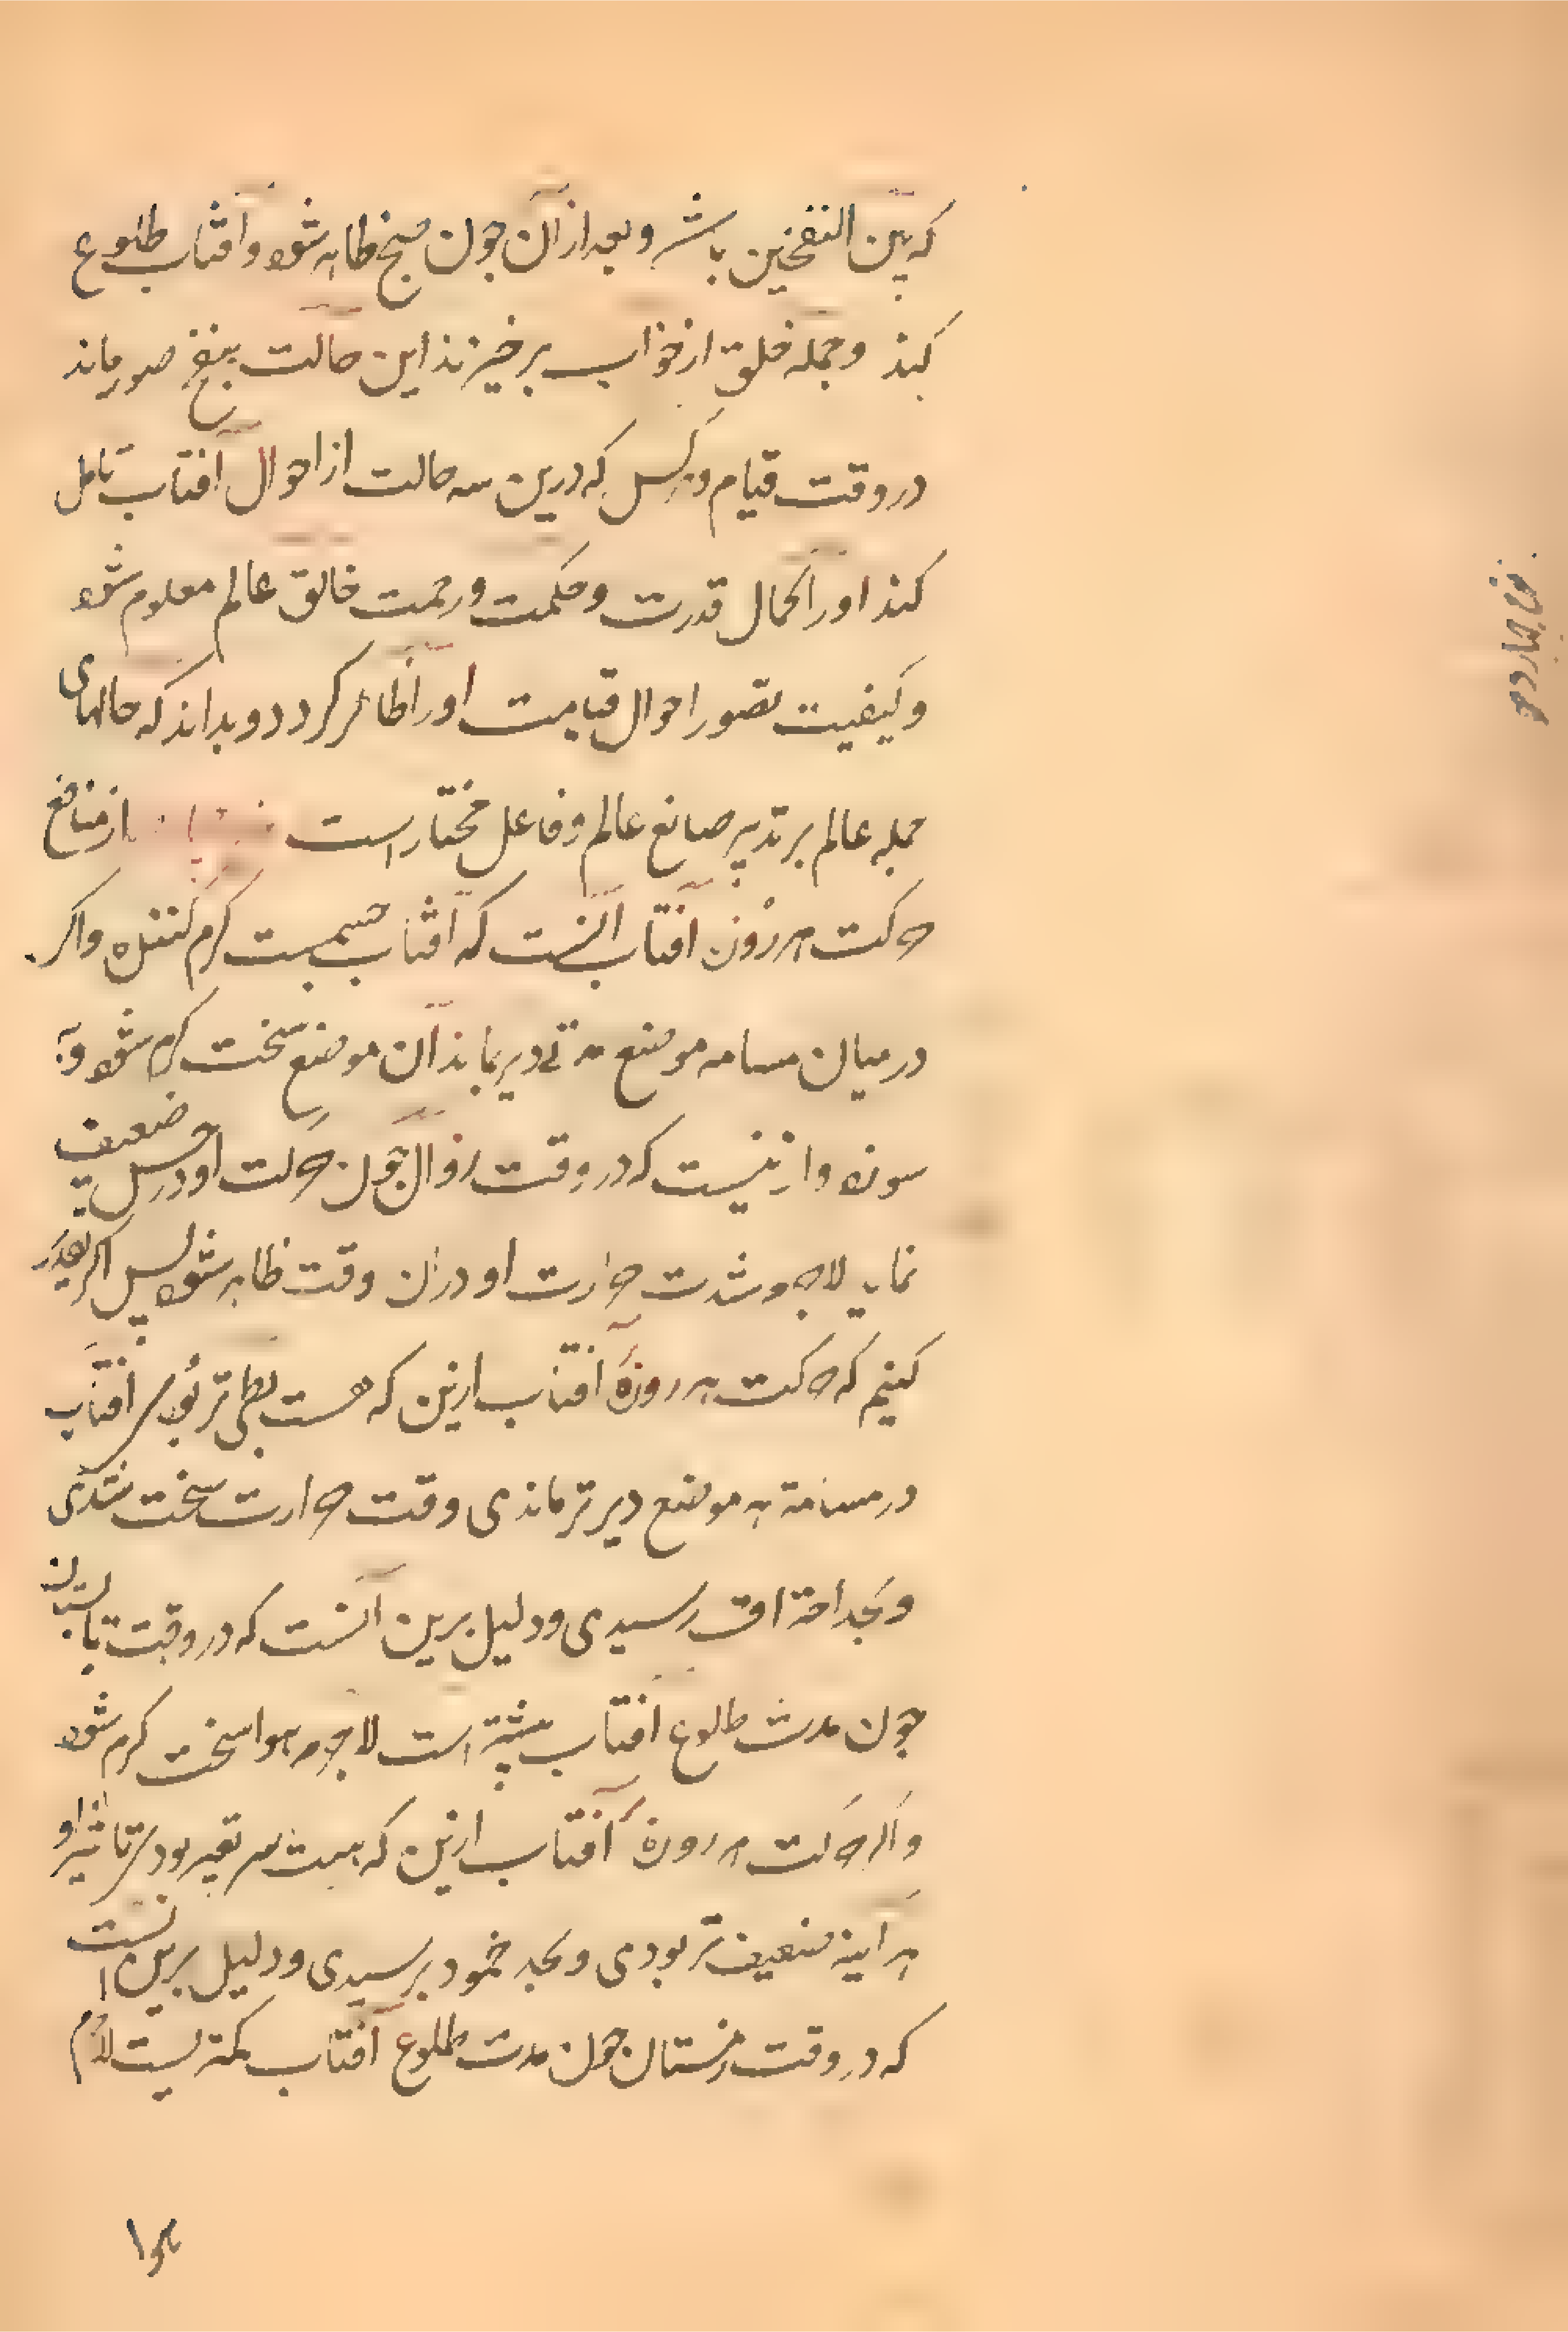 که بین النفختین باشد و بعد از آن جون صبح ظاهر شود و آفتاب طلوع
کند و جمله خلق از خواب برخیزند این حالت بنفخ صور ماند
در وقت قیام و هر کس که درین سه حالت از احوال آفتاب تامل
کند او را کمال قدرت و حکمت و رحمت خالق عالم معلوم شود
و کیفیت تصور احوال قیامت او را ظاهر کردد و بداند که حالهای
جمله عالم بر تدبیر صانع عالم و فاعل مختار است از منافع
حرکت هر روزه آفتاب آنست که آفتاب جسمیست کرم کننده و اکر
در میان مسامه موضع مدتی دیر بماند آن موضع سخت کرم شود و
سوزد و ازینست که در وقت زوال جون حرکت او در حس ضعیف
نماید لاجرم شدت حرارت او در آن وقت ظاهر شود پس اکر تقدیر
کنیم که حرکت هر روزه آفتاب ازین که هست بطی تر بودی آفتاب
در مسامتة هر موضع دیرتر ماندی وقت حرارت سخت شدی
و بحد احتراق رسیدی و دلیل برین آنست که در وقت تابستان
جون مدت طلوع آفتاب بیشتر است لاجرم هوا سخت کرم شود
و اکر حرکت هر روزه آفتاب ازین که هست سریعتر بودی تاثیر او
هر آینه ضعیف تر بودی و بحد خمود برسیدی و دلیل برین آنست
که در وقت زمستان جون مدت طلوع آفتاب کمتریست لاجرم
نوع چهاردهم